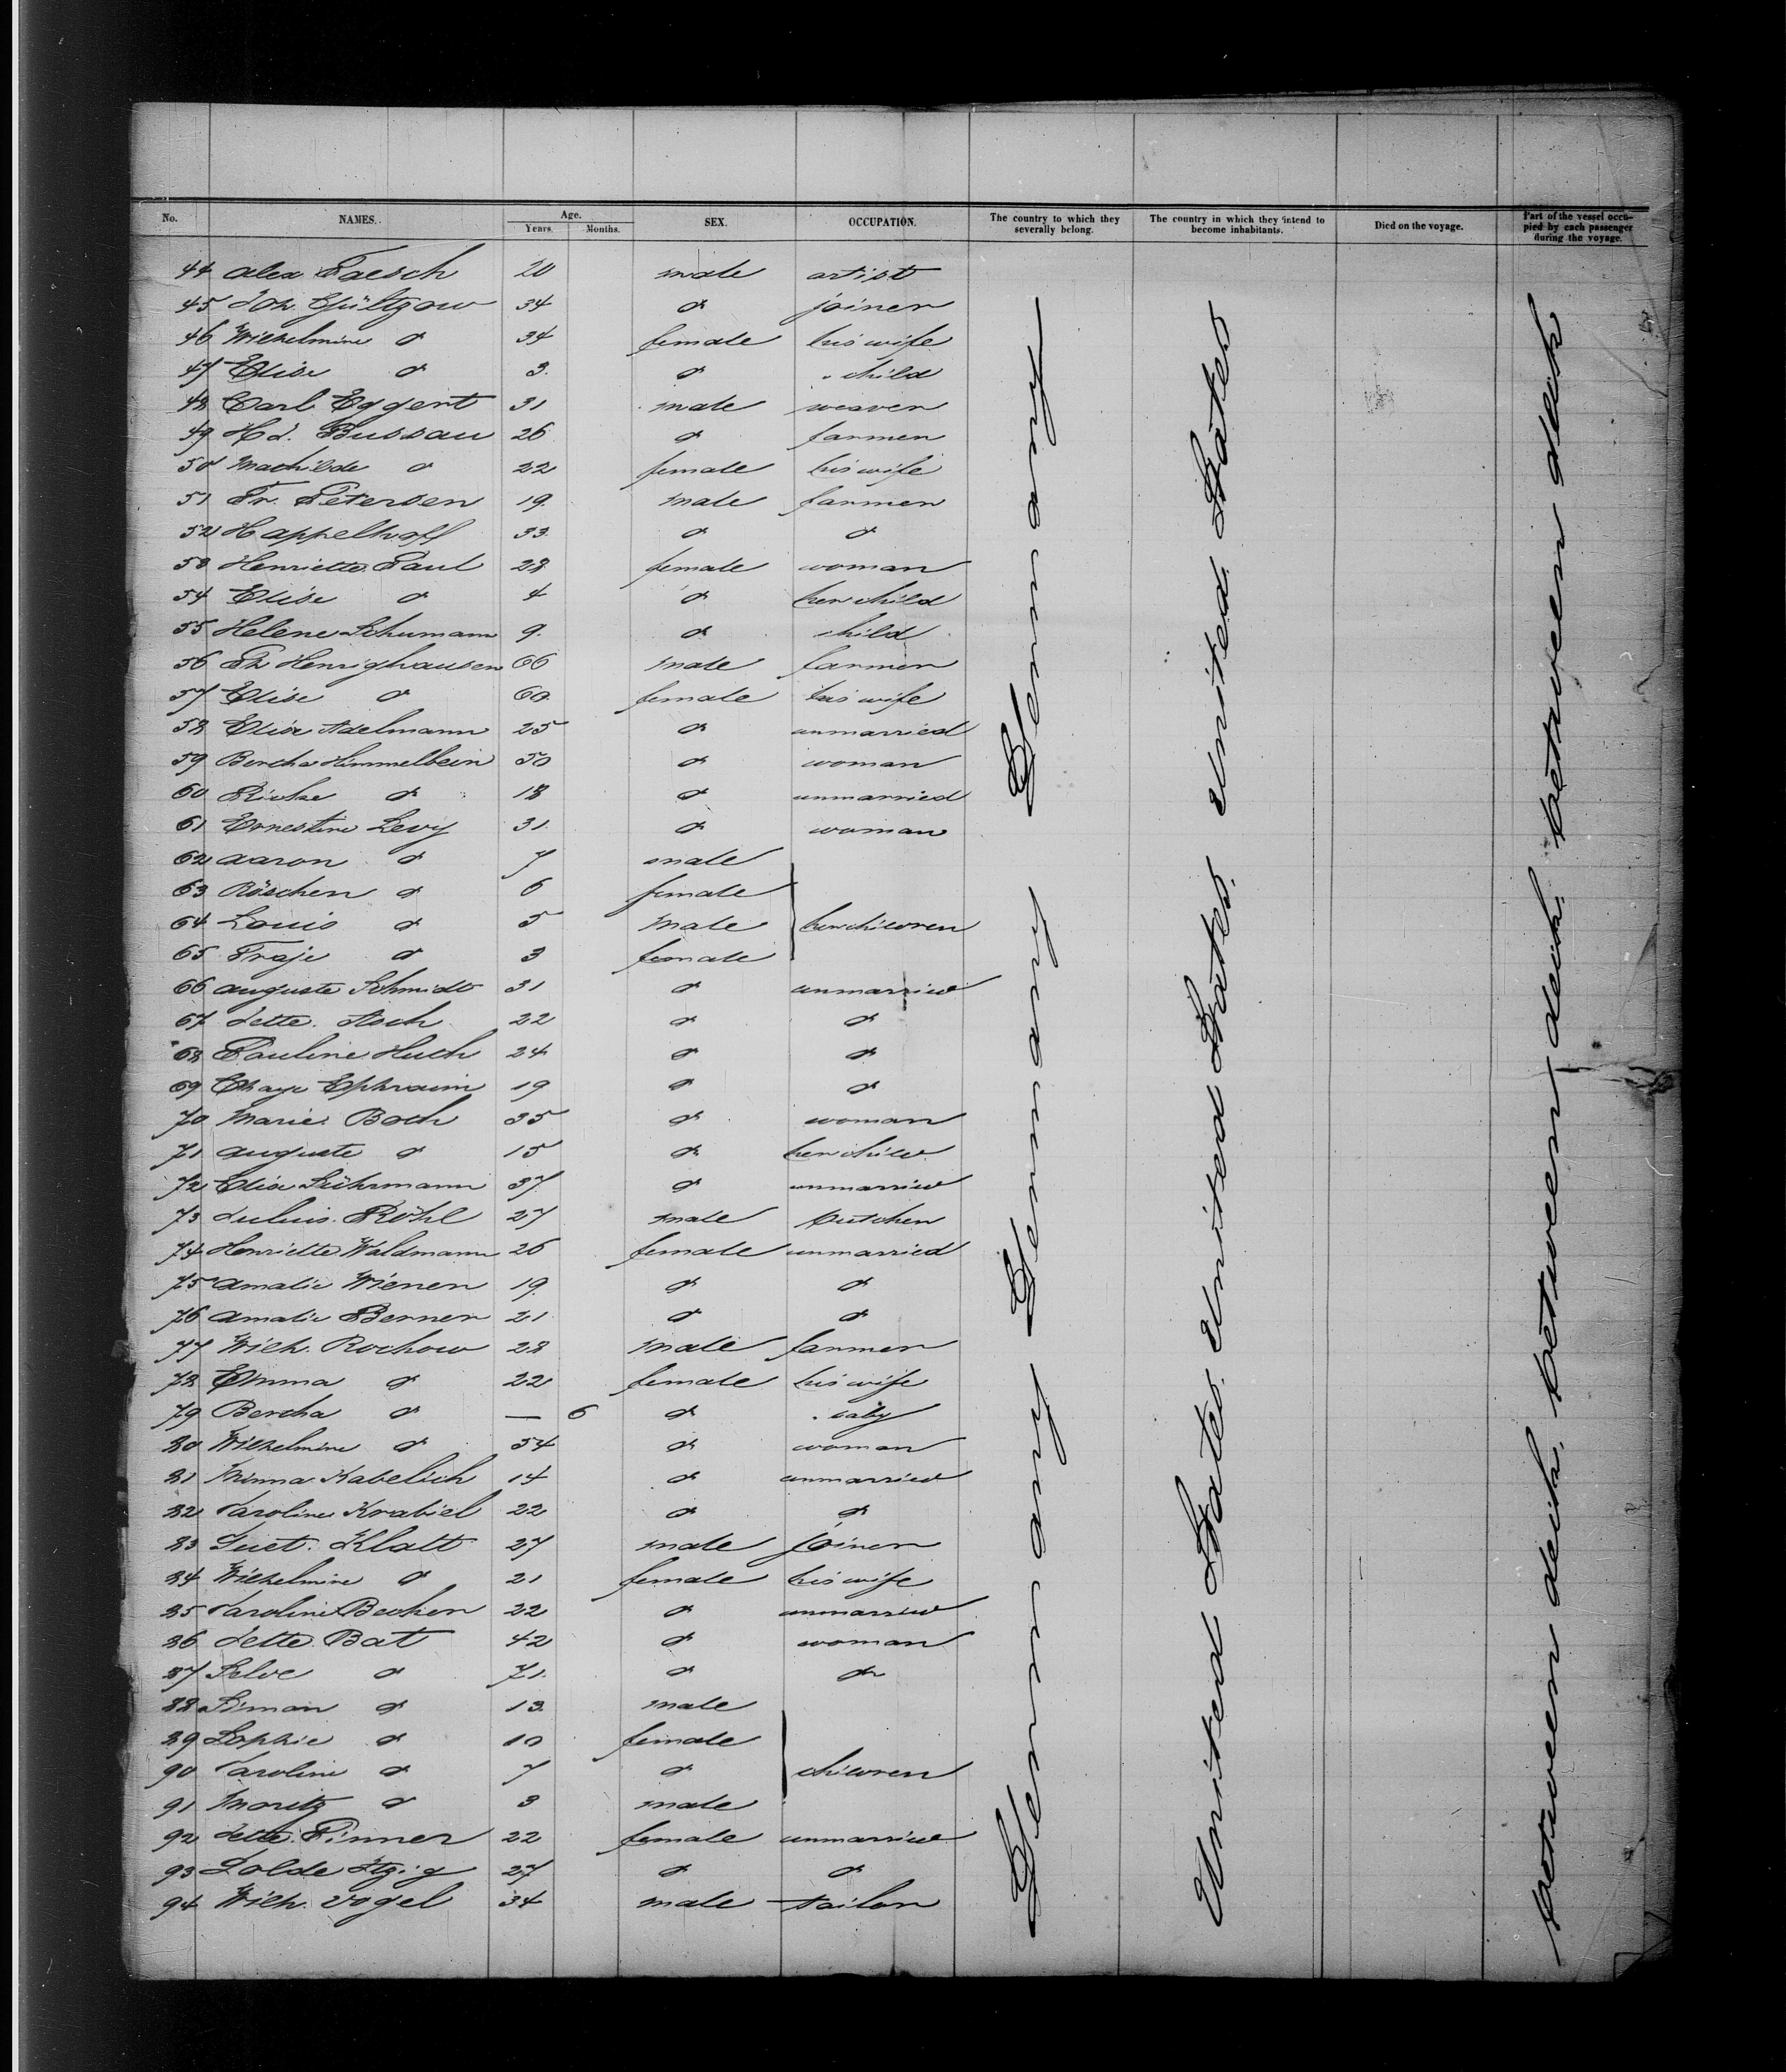 No. NAMES. Age. Years. Months. SEX. OCCUPATION. The country to which they severally belong. The country in which they intend to become inhabitants. Died on the voyage. Part of the vessel occupied by each passenger during the voyage.
44 Alex Faesch 20 male artist
45 Joh. Gültzow 34 do joiner
46 Wilhelmine do 34 female his wife
47 Elise do 3 do child
48 Carl Eggert 31 male weaver
49 Hd. Bussau 26 do farmer
50 Mathilde do 22 female his wife
51 Fr. Petersen 19 male farmer
52 Happelhoff 33 do do
53 Henriette Paul 28 female woman
54 Elise do 4 do her child
55 Helene Schumann 9 do child
56 Fr. Henrighausen 66 male farmer
57 Elise do 60 female his wife
58 Elise Adelmann 25 do unmarried
59 Bertha Himmelbein 50 do woman
60 Ricke do 18 do unmarried
61 Ernestine Levy 31 do woman
62 Aaron do 7 male
63 Röschen do 6 female
64 Louis do 5 male her children
65 Fraje do 3 female
66 Auguste Schmidt 31 do unmarried
67 Jette Asch 22 do do
68 Pauline Huth 24 do do
69 Chaye Ephraim 19 do do
70 Marie Both 35 do woman
71 Auguste do 15 do her child
72 Elise Lührmann 37 do unmarried
73 Julius Röhl 27 male butcher
74 Henriette Waldmann 26 female unmarried
75 Amalie Wiener 19 do do
76 Amalie Berner 21 do do
77 Wilh. Rochow 28 male farmer
78 Emma do 22 female his wife
79 Bertha do — 6 do baby
80 Wilhelmine do 54 do woman
81 Minna Kabelich 14 do unmarried
82 Caroline Krabiel 22 do do
83 Klatt 27 male joiner
84 Wilhelmine do 21 female his wife
85 Caroline Becker 22 do unmarried
86 Jette Bat 42 do woman
87 do 71 do do
88 Simon do 13 male
89 Sophie do 10 female
90 Caroline do 7 do children
91 Moritz do 3 male
92 Jette Pinner 22 female unmarried
93 Itzig 27 do do
94 Wilh. Vogel 34 male tailor
Germany Germany Germany
United States United States United States
between deck between deck between deck